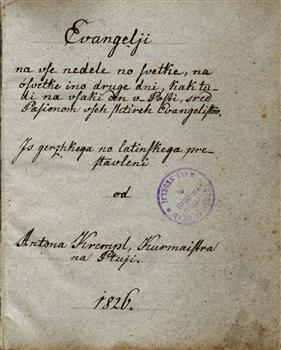 Evangelji
na vſe nedele no ſvetke, na
óſvetke ino druge dni, kak tu-
di na vſaki den v- Poſti, sred
Paſionom vſeh ſhtirih Evangeliſtov,
Is gerzhkega no latinſkega pre-
ſtavleni
od
Antona Krempl, Kurmaiſtra
na Ptuji.
1826.